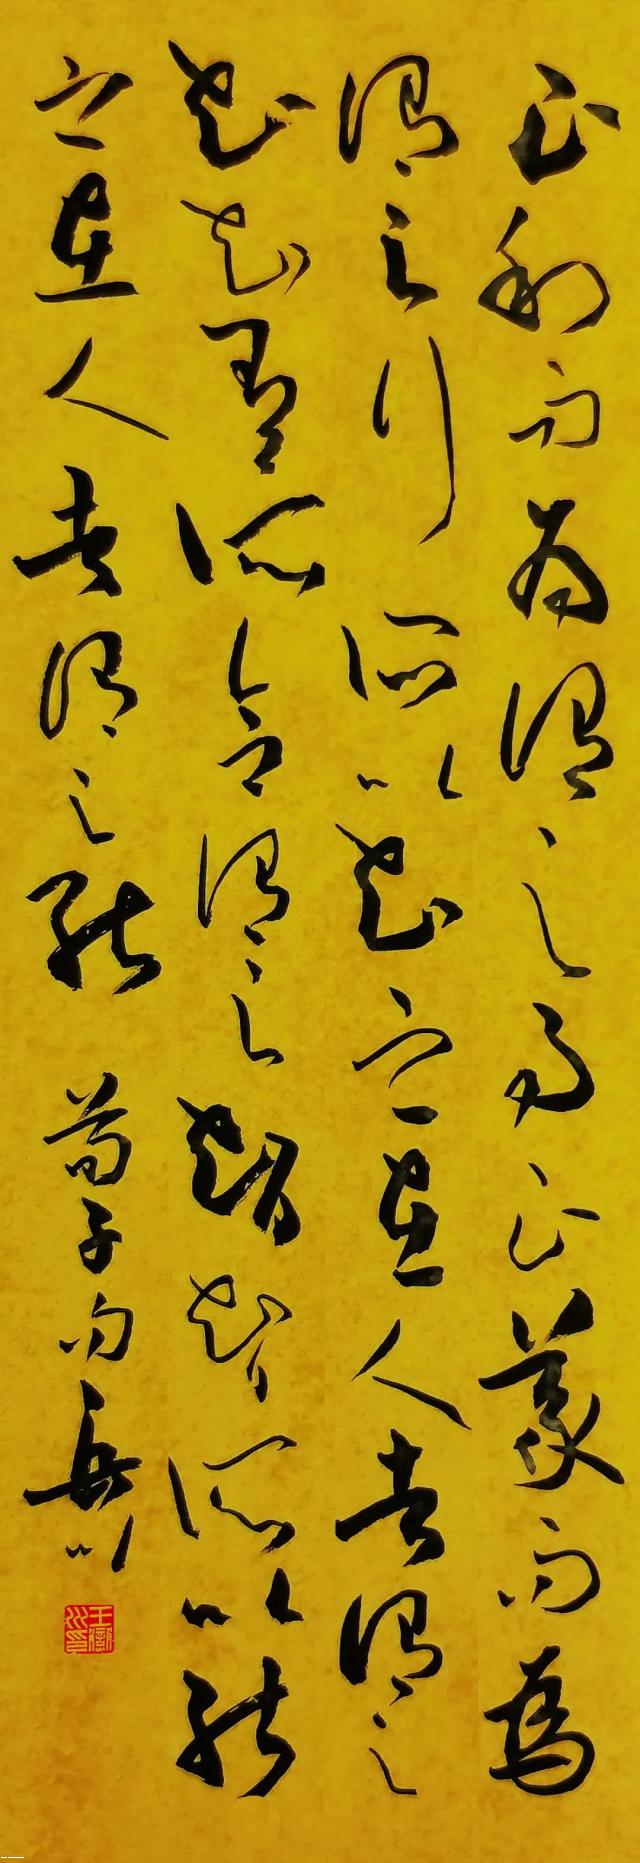 正利而為謂之事正義而為
謂之行所以知之在人者謂之
知知有所合謂之智智所以能
之在人者謂之能 荀子句 岳川
王嶽川印